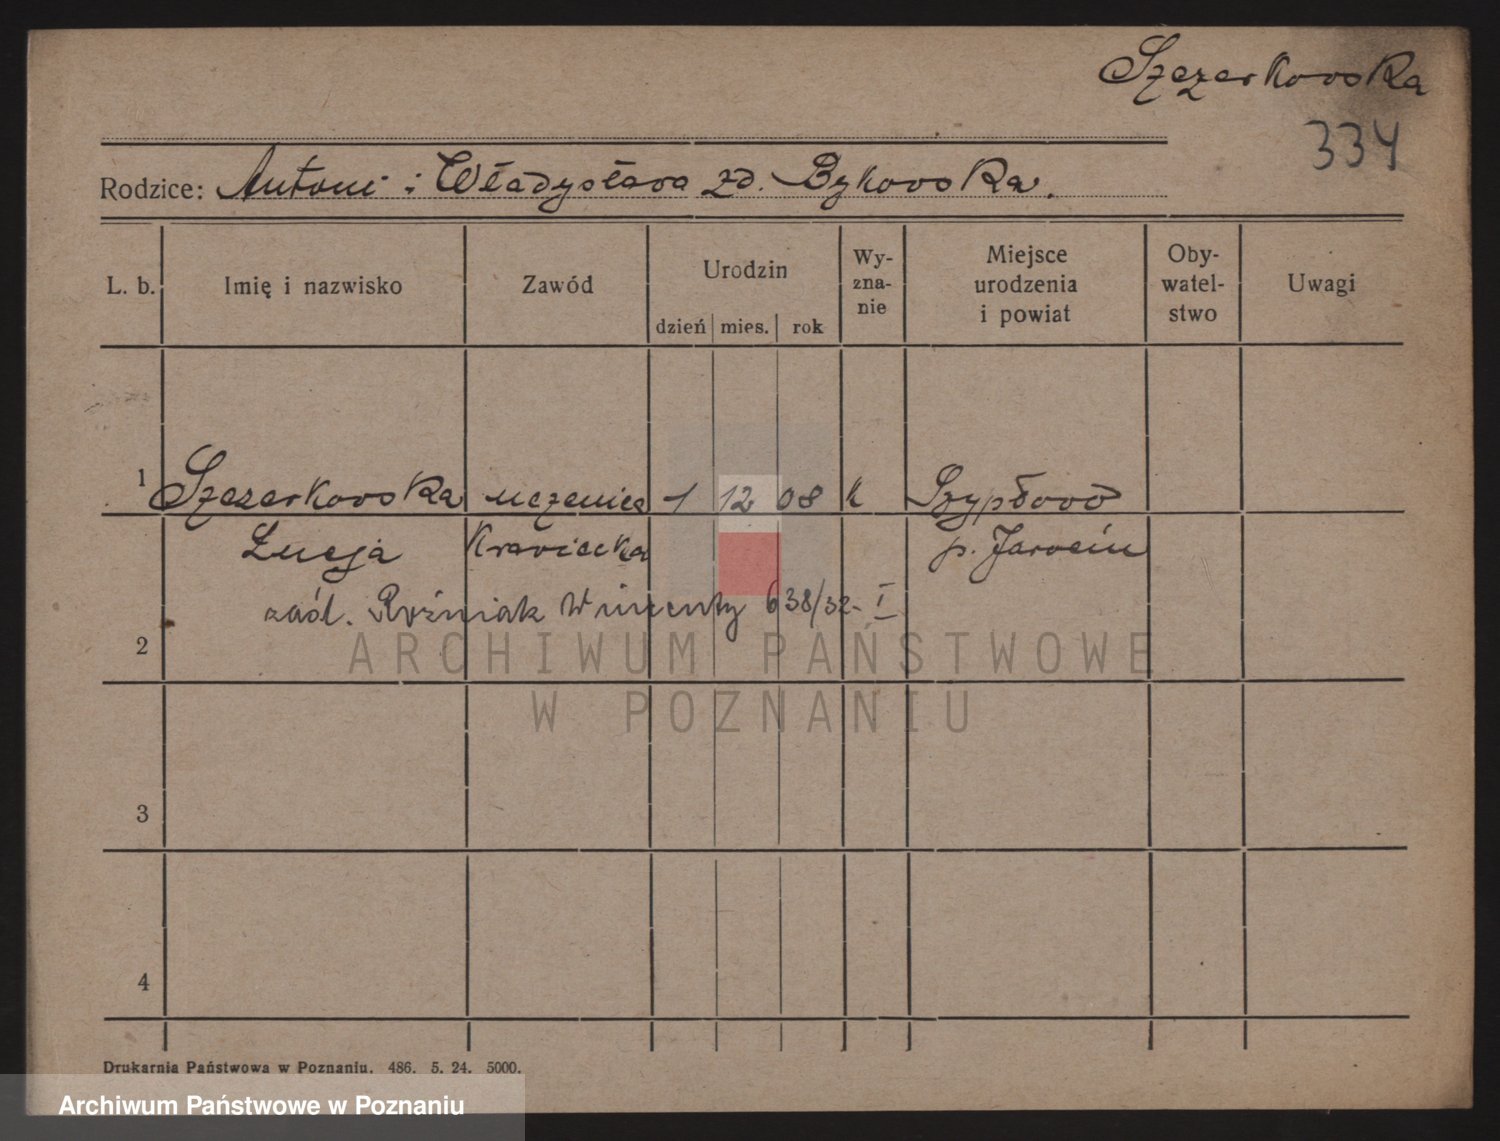 Szczerkowska
334
Rodzice: Antoni i Władysława zd. Bykowska.
L. b. Imię i nazwisko Zawód Urodzin dzień mies. rok Wy-zna-nie Miejsce urodzenia i powiat Oby-watel-stwo Uwagi
1 Szczerkowska uczenica 1 12 08 k Szypłowo
Łucja Krawiecka p. Jarocin
zaśl. Roźniak Wincenty 638/32- I
2
3
4
Drukarnia Państwowa w Poznaniu. 486. 5. 24. 5000.
ARCHIWUM PAŃSTWOWE
W POZNANIU
Archiwum Państwowe w Poznaniu